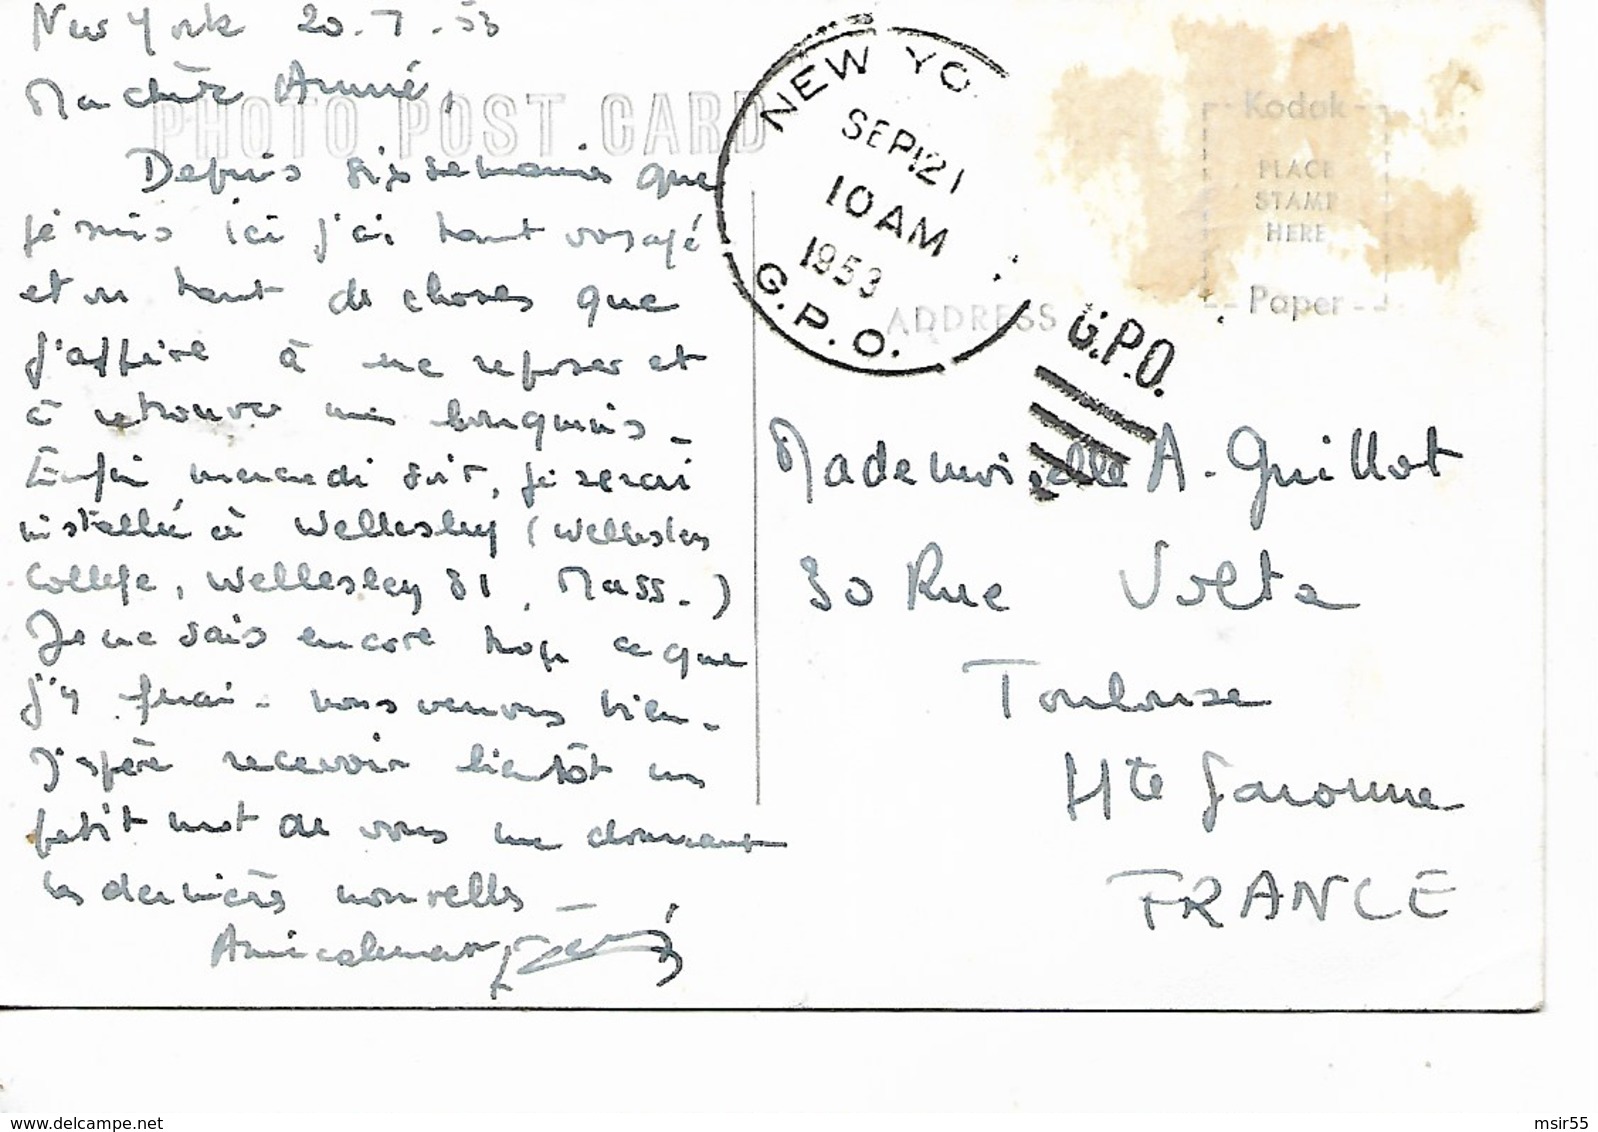 New York 20-7-53
Ma chère Année,
PHOTO POST CARD
Depuis six semaines que
je suis ici j'ai tant voyagé
et vu tant de choses que
j'aspire à me reposer et
à retrouver mes bouquins_
Enfin mercredi soir, je serai
installée à Wellesley (Wellesley
College, Wellesley 81, Mass.)
Je ne sais encore trop ce que
j'y ferai - nous verrons bien.
J'espère recevoir bientôt un
petit mot de vous me donnant
les dernières nouvelles_
Amicalement
NEW YO
SEP 21
10 AM
1953
G.P.O.
G.P.O.
Kodak
PLACE
STAMP
HERE
Paper
ADDRESS
Mademoiselle A. Guillot
30 Rue Volta
Toulouse
Hte Garonne
FRANCE
www.delcampe.net
msir55